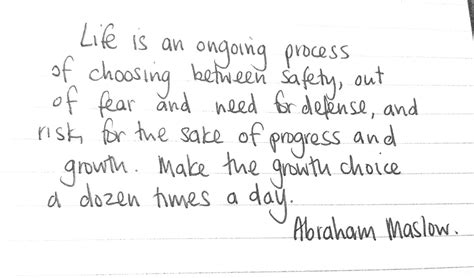 Life is an ongoing process
of choosing between safety, out
of fear and need for defense, and
risk, for the sake of progress and
growth. Make the growth choice
a dozen times a day.
Abraham Maslow.